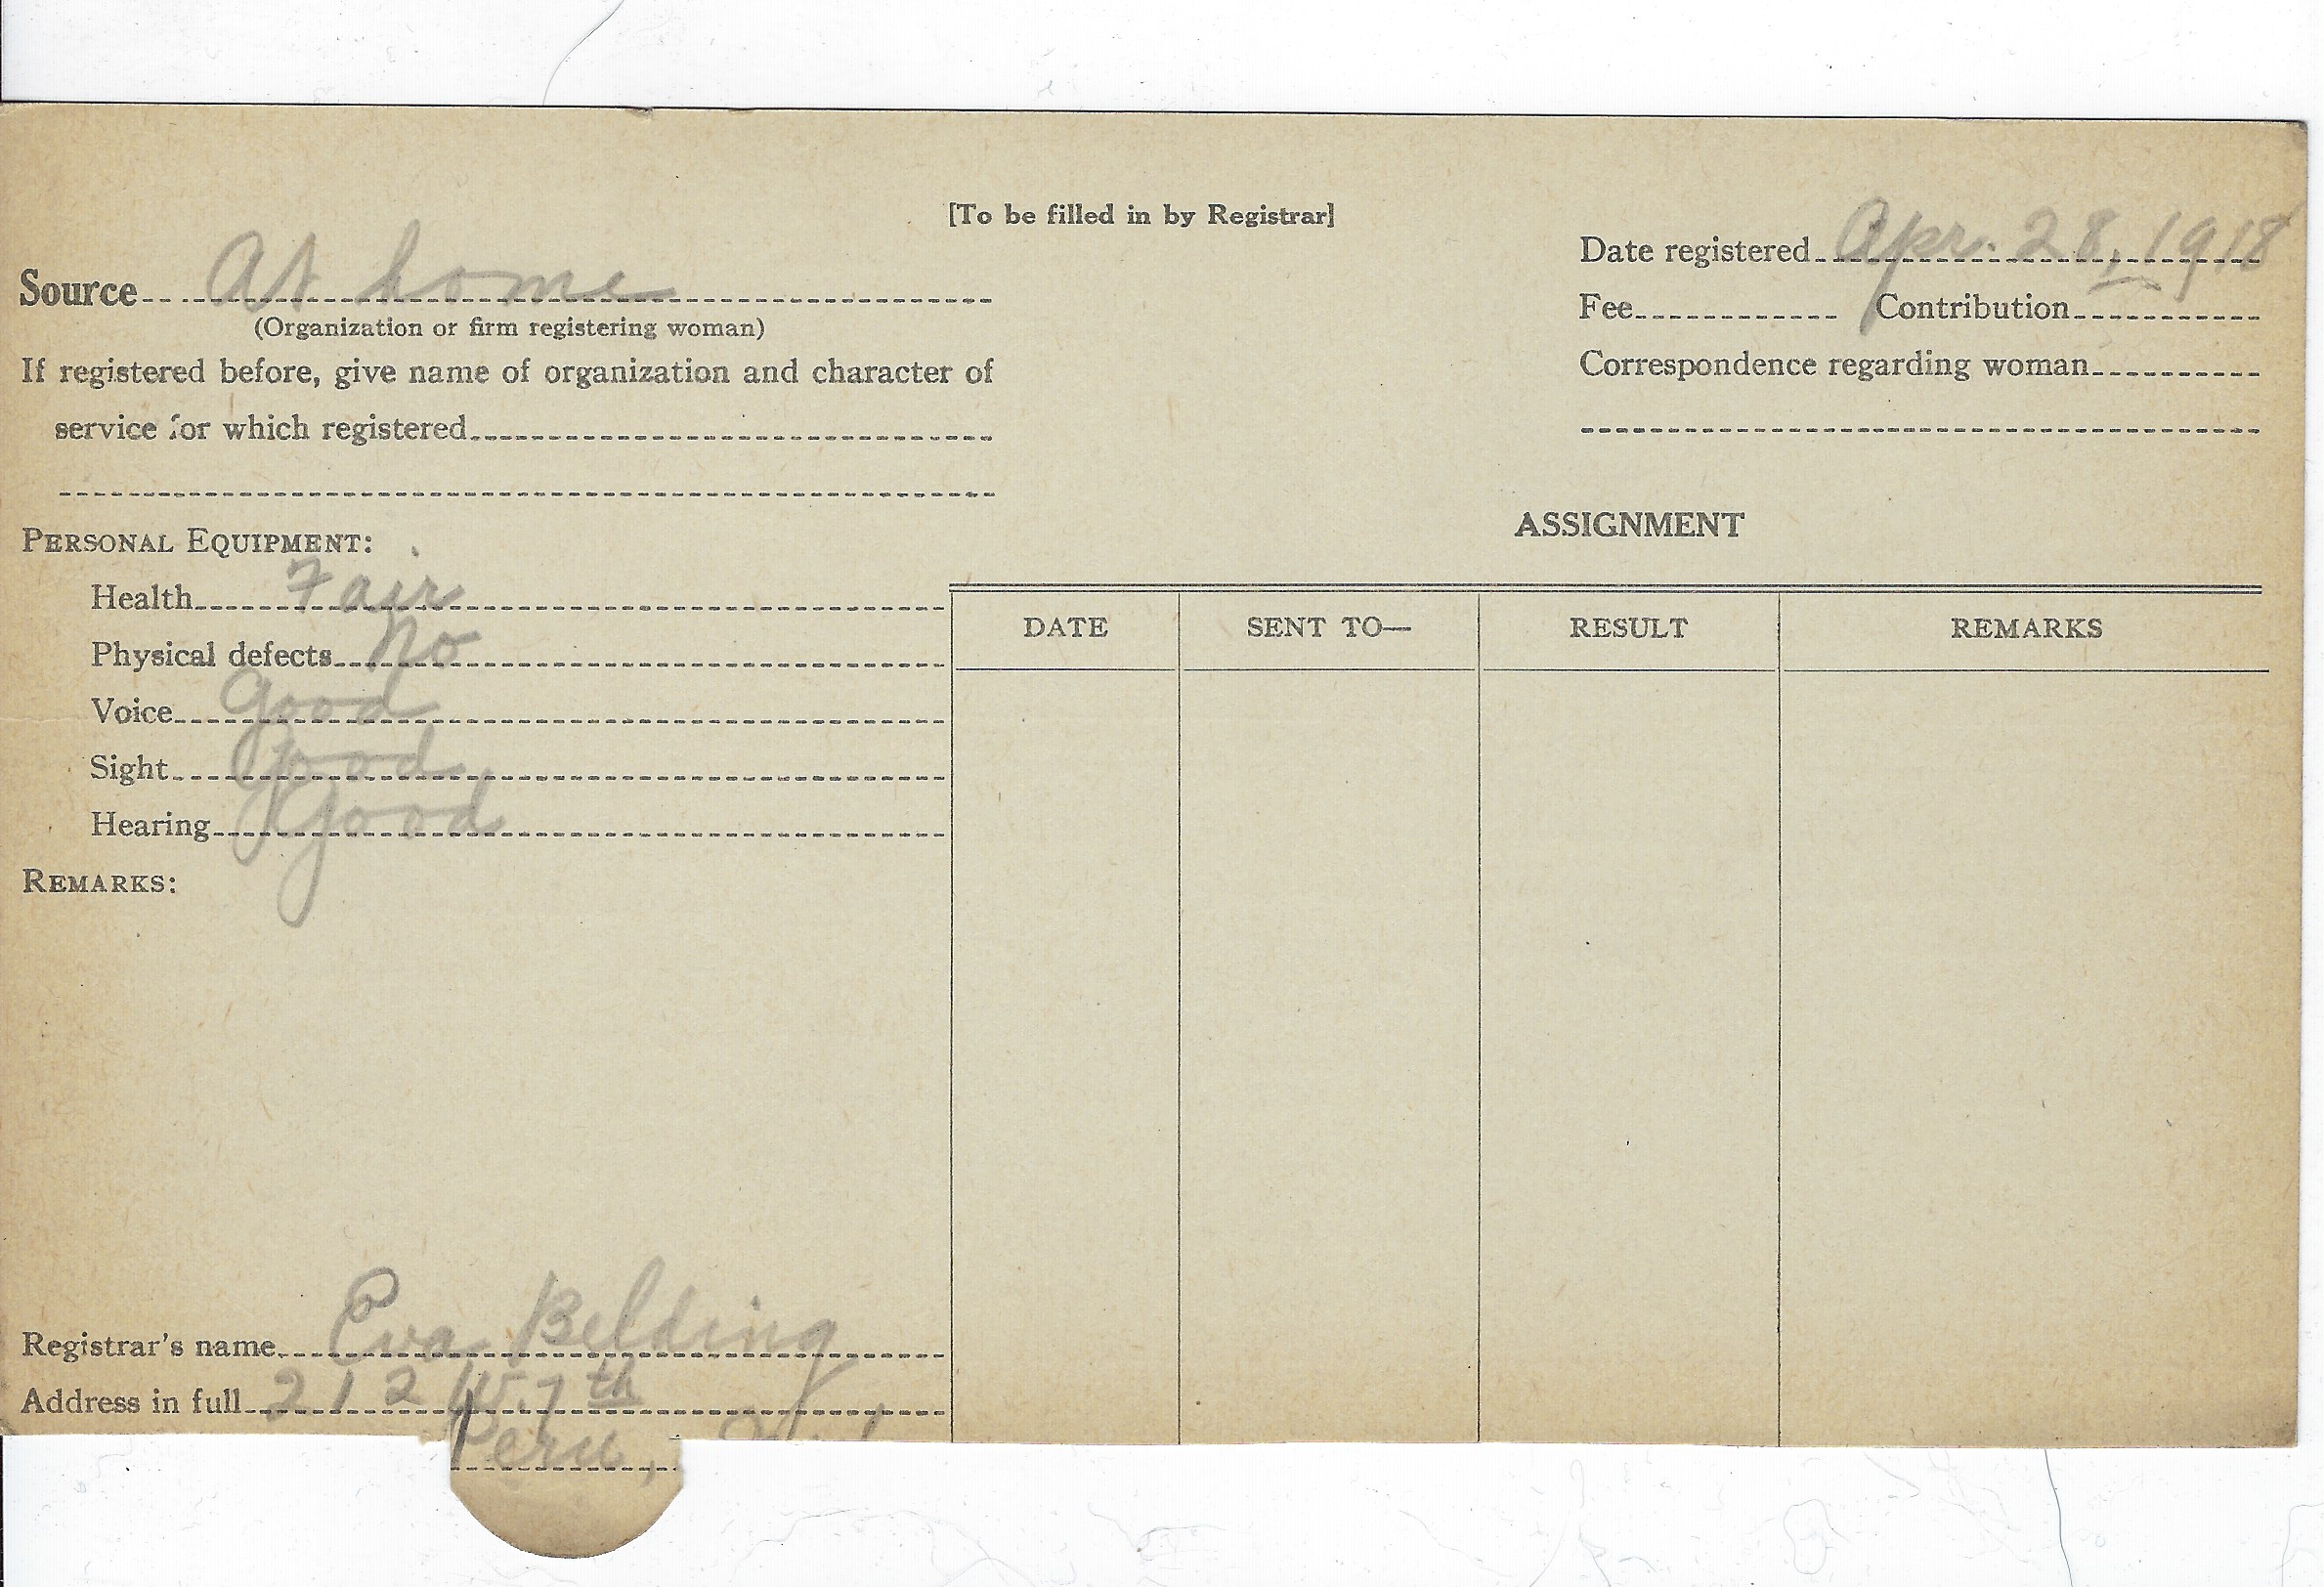 [To be filled in by Registrar]
Date registered Apr. 28, 1918
Source At home
(Organization or firm registering woman)
Fee Contribution
If registered before, give name of organization and character of
service for which registered
Correspondence regarding woman
ASSIGNMENT
PERSONAL EQUIPMENT:
Health Fair
Physical defects No
Voice Good
Sight Good
Hearing Good
REMARKS:
DATE SENT TO— RESULT REMARKS
Registrar's name Eva Belding
Address in full 212 W. 7th
Peru,